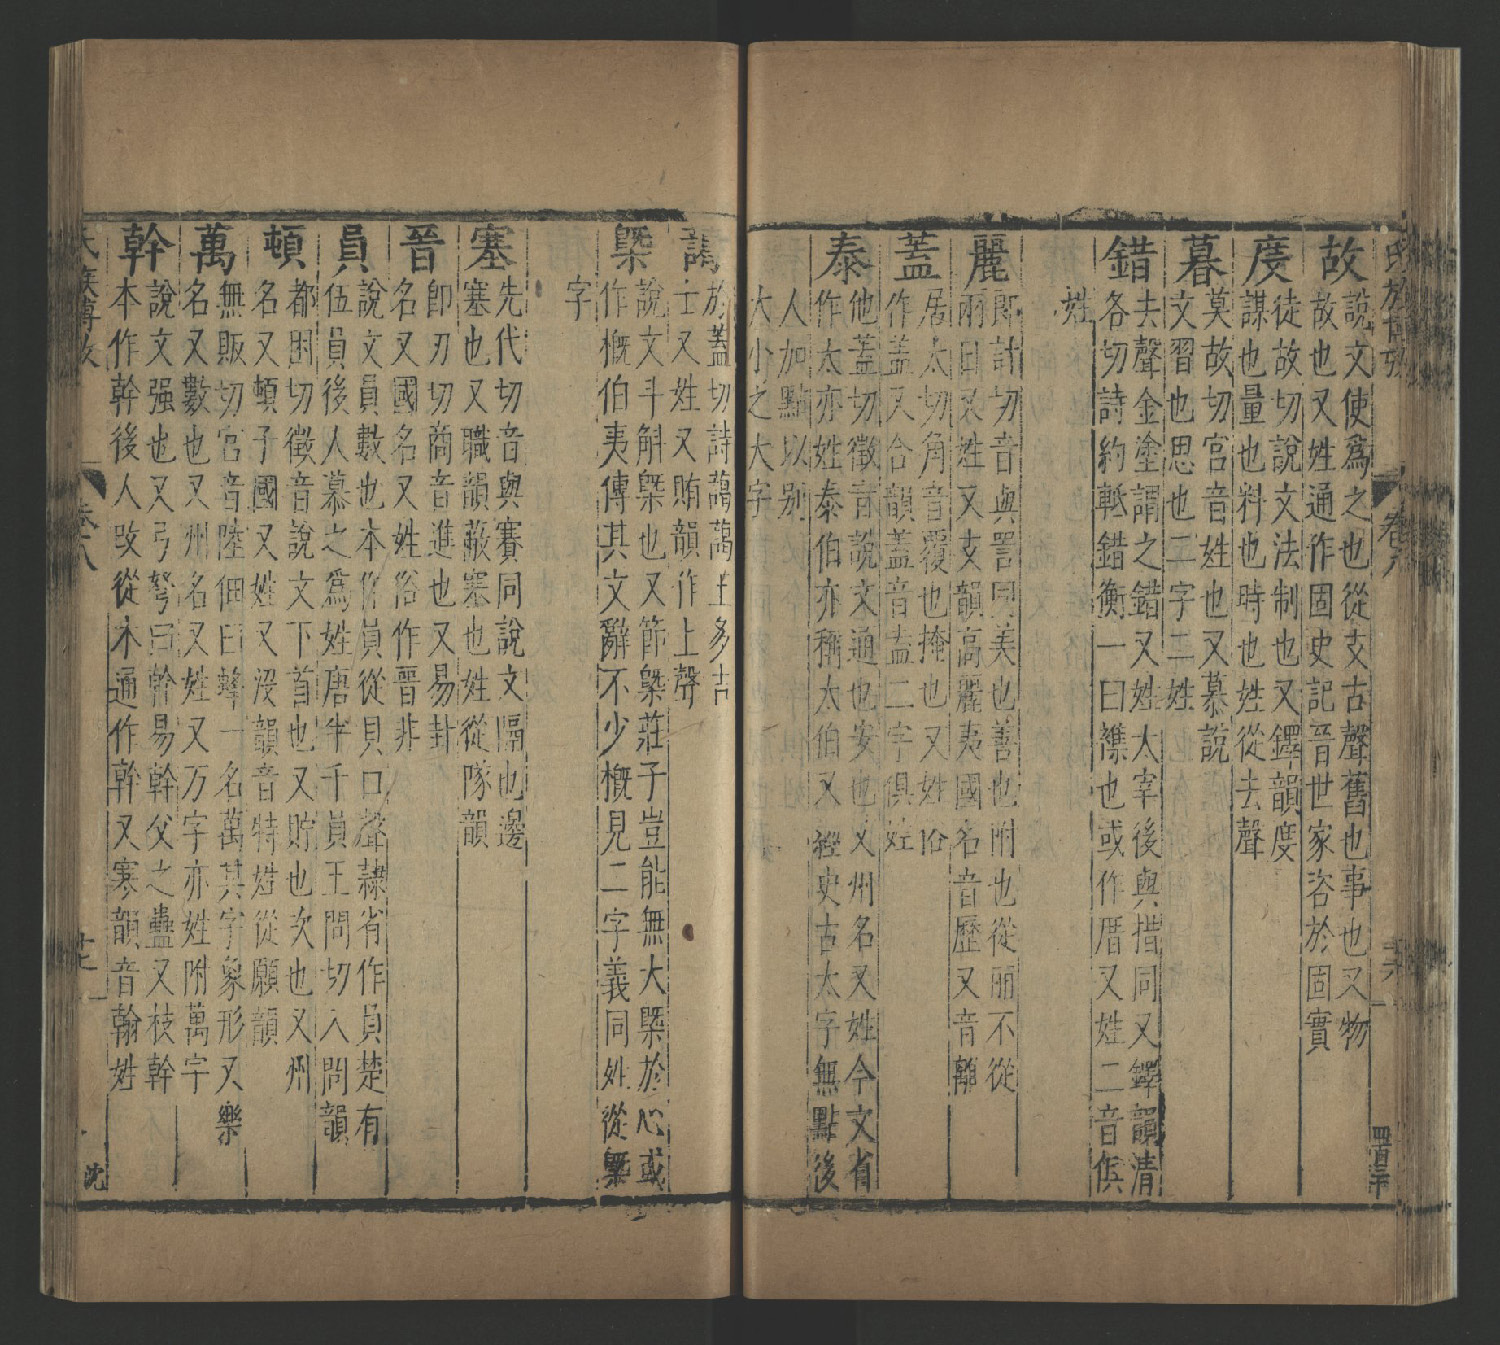 故說文使爲之也從支古聲舊也事也又物
故也又姓通作固史記晉世家咨於固實
度徒故切說文法制也又鐸韻度
謀也量也料也時也姓從去聲
暮莫故切宮音姓也又慕說
文習也思也二字二姓
錯去聲金塗謂之錯又姓太宰後與措同又鐸韻清
各切詩約軧錯衡一曰襍也或作厝又姓二音俟
姓
麗郎計切音與詈同美也善也附也從丽不從
兩曰又姓又支韻高麗夷國名音歷又音離
蓋居太切角音覆也掩也又姓俗
作盖又合韻蓋音盍二字俱姓
泰他蓋切徵音說文通也安也又州名又姓今文省
作太亦姓泰伯亦稱太伯又經史古太字無點後
人加點以別
大小之大字
藹於蓋切詩藹藹王多吉
士又姓又賄韻作上聲
槩說文斗斛槩也又節槩莊子豈能無大槩於心或
作概伯夷傳其文辭不少概見二字義同姓從槩
字
塞先代切音與賽同說文隔也邊
塞也又職韻蔽塞也姓從隊韻
晉即刃切商音進也又易封
名又國名又姓俗作晋非
員說文員數也本作貟從貝口聲隷省作員楚有
伍員後人慕之爲姓唐半千員王問切入問韻
頓都困切徵音說文下首也又貯也次也又州
名又頓子國又姓又沒韻音特姓從願韻
萬無販切宮音陸佃曰蜂一名萬其字象形又樂
名又數也又州名又姓又万字亦姓附萬字
幹說文强也又弓弩曰幹易幹父之蠱又枝幹
本作幹後人改從木通作幹又寒韻音翰姓
氏族博攷
卷八
沈